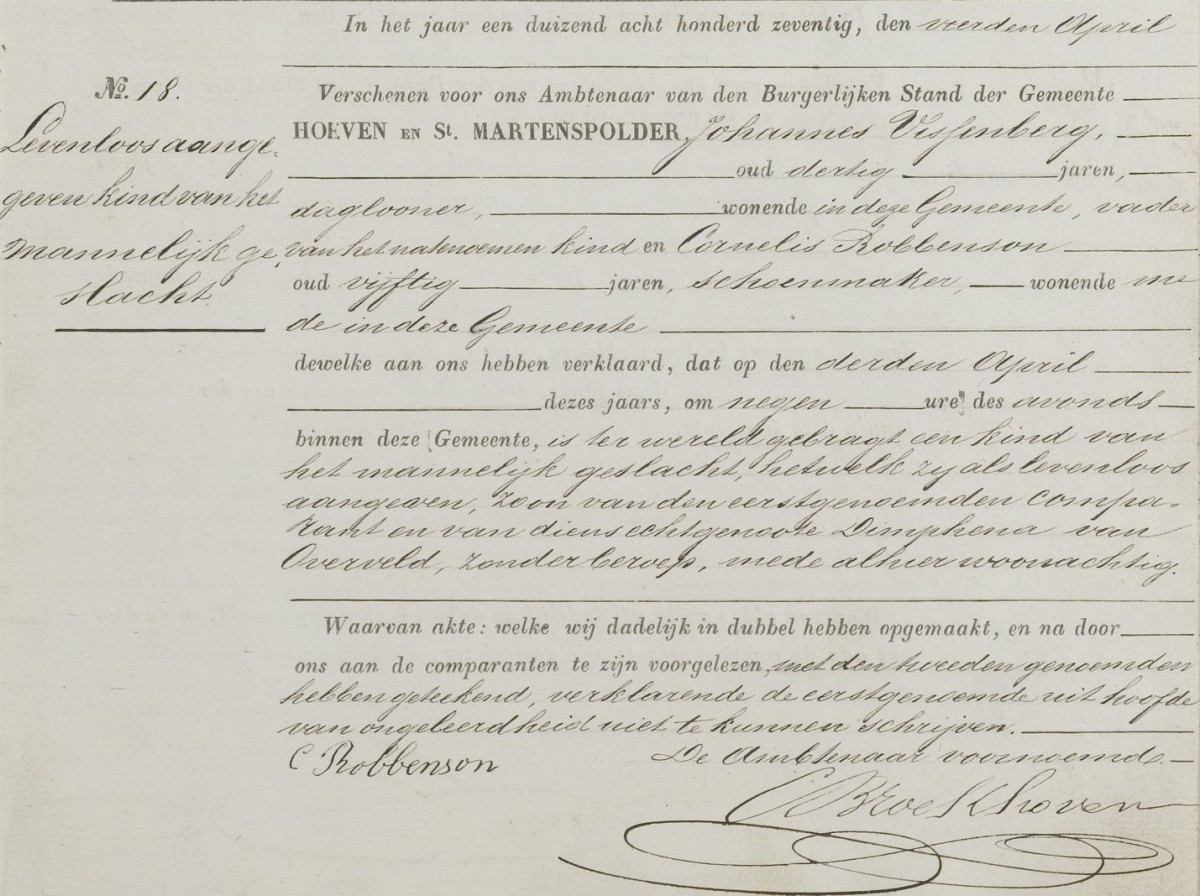 In het jaar een duizend acht honderd zeventig, den vierden April
No. 18.
Levenloos aange-
geven kind van het
mannelijk ge-
slacht.
Verschenen voor ons Ambtenaar van den Burgerlijken Stand der Gemeente
HOEVEN EN St. MARTENSPOLDER, Johannes Vissenberg,
oud dertig jaren,
daglooner, wonende in deze Gemeente, vader
van het natenoemen kind en Cornelis Robbenson
oud vijftig jaren, schoenmaker, wonende me
de in deze Gemeente
dewelke aan ons hebben verklaard, dat op den derden April
dezes jaars, om negen ure des avonds
binnen deze Gemeente, is ter wereld gebragt een kind van
het mannelijk geslacht, hetwelk zy als levenloos
aangeven, zoon van den eerstgenoemden compa-
rant en van diens echtgenoote Dimphena van
Overveld, zonder beroep, mede alhier woonachtig.
Waarvan akte: welke wij dadelijk in dubbel hebben opgemaakt, en na door
ons aan de comparanten te zijn voorgelezen, met den tweeden genoemden
hebben geteekend, verklarende de eerstgenoemde uit hoofde
van ongeleerdheid niet te kunnen schrijven.
C Robbenson De Ambtenaar voornoemd
C Broekhoven